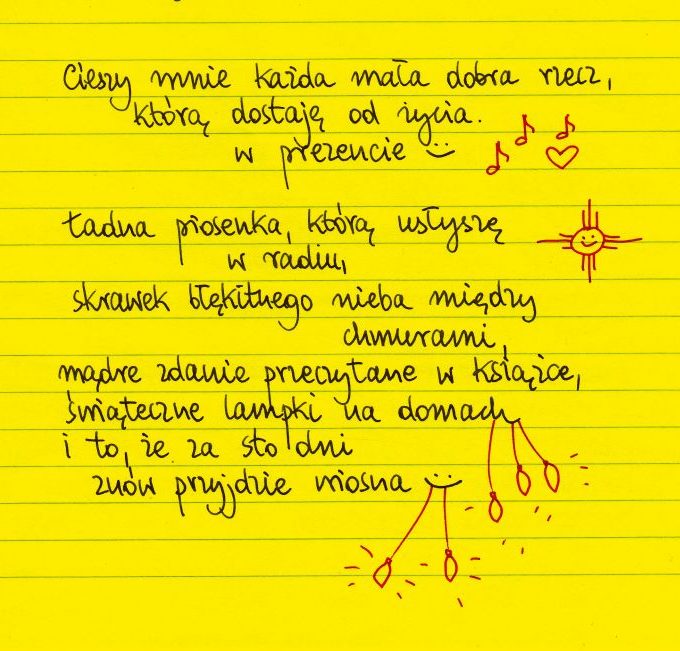 Cieszy mnie każda mała dobra rzecz,
którą dostaję od życia.
w prezencie
Ładna piosenka, którą usłyszę
w radiu,
skrawek błękitnego nieba między
chmurami,
mądre zdanie przeczytane w książce,
świąteczne lampki na domach
i to, że za sto dni
znów przyjdzie wiosna